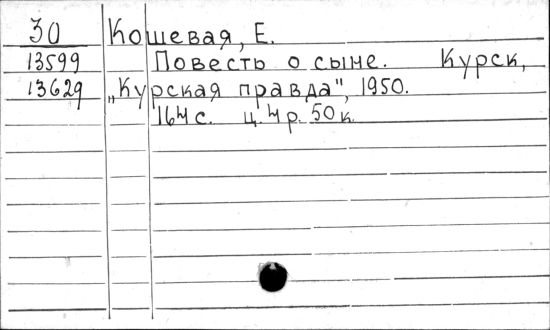 30 Кошевая, Е.
13599 Повесть о сыне. Курск,
13629 „Курская правда", 1950.
164 с. ц. 4 р. 50 к.